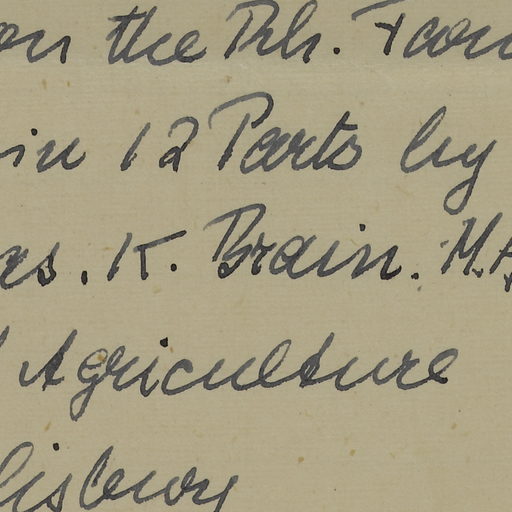 on the Rh. Farm
in 12 Parts by
rs. K. Brain. M.A
Agriculture
lisbury